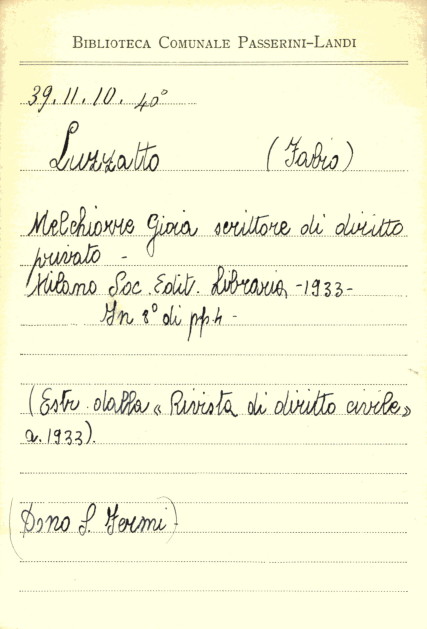 BIBLIOTECA COMUNALE PASSERINI-LANDI
39.11.10. 40°
Luzzatto (Fabio)
Melchiorre Gioia scrittore di diritto
privato -
Milano Soc. Edit. Libraria, -1933-
In 8° di pp. 4 -
(Estr. dalla « Rivista di diritto civile »
a. 1933).
(Dono S. Fermi)